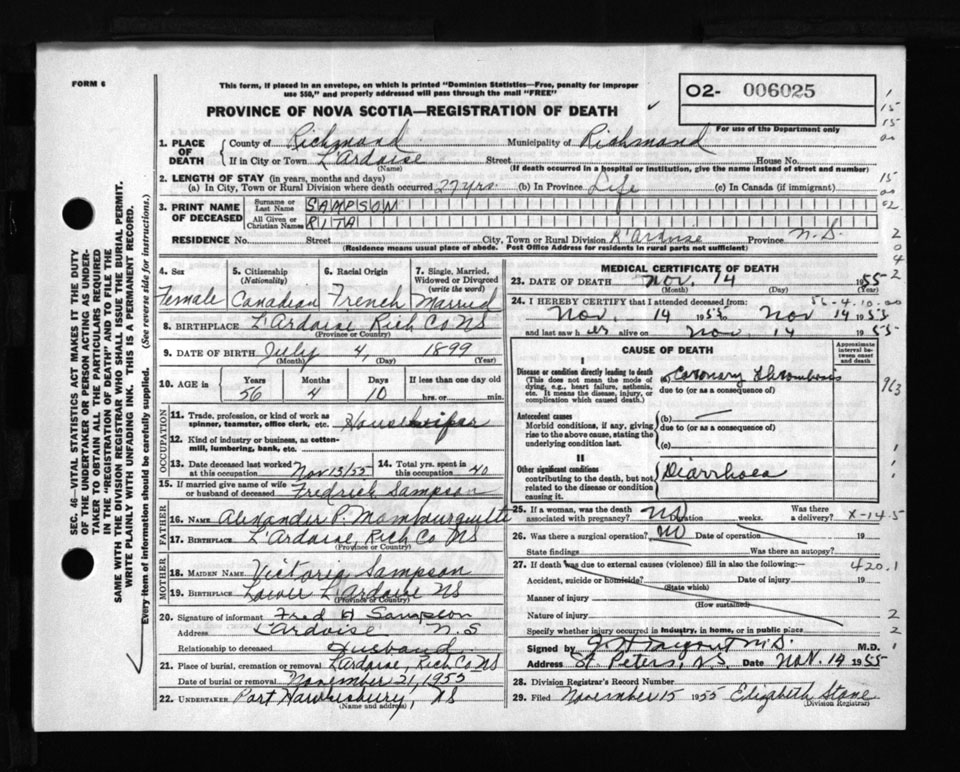 FORM 6
This form, if placed in an envelope, on which is printed "Dominion Statistics—Free, penalty for improper
use $50," and properly addressed will pass through the mail "FREE"
PROVINCE OF NOVA SCOTIA—REGISTRATION OF DEATH
O2- 006025
For use of the Department only
SEC. 46—VITAL STATISTICS ACT MAKES IT THE DUTY
OF THE UNDERTAKER OR PERSON ACTING AS UNDER-
TAKER TO OBTAIN ALL THE PARTICULARS REQUIRED
IN THE "REGISTRATION OF DEATH" AND TO FILE THE
SAME WITH THE DIVISION REGISTRAR WHO SHALL ISSUE THE BURIAL PERMIT.
WRITE PLAINLY WITH UNFADING INK. THIS IS A PERMANENT RECORD.
Every item of information should be carefully supplied. (See reverse side for instructions.)
1. PLACE OF DEATH
County of Richmond Municipality of Richmond
If in City or Town L'Ardoise Street House No.
(Name) (If death occurred in a hospital or institution, give the name instead of street and number)
2. LENGTH OF STAY (in years, months and days)
(a) In City, Town or Rural Division where death occurred 27 yrs. (b) In Province Life (c) In Canada (if immigrant)
3. PRINT NAME OF DECEASED
Surname or Last Name SAMPSON
All Given or Christian Names RITA
RESIDENCE No. Street City, Town or Rural Division L'Ardoise Province N.S.
(Residence means usual place of abode. Post Office Address for residents in rural parts not sufficient)
4. Sex
Female
5. Citizenship (Nationality)
Canadian
6. Racial Origin
French
7. Single, Married, Widowed or Divorced (write the word)
Married
8. BIRTHPLACE L'Ardoise Rich Co NS
(Province or Country)
9. DATE OF BIRTH July 4 1899
(Month) (Day) (Year)
10. AGE in Years Months Days If less than one day old
56 4 10 hrs. or min.
OCCUPATION
11. Trade, profession, or kind of work as
spinner, teamster, office clerk, etc. Housewife
12. Kind of industry or business, as cotton-
mill, lumbering, bank, etc.
13. Date deceased last worked at this occupation Nov 13/55
14. Total yrs. spent in this occupation 40
15. If married give name of wife
or husband of deceased Fredrick Sampson
FATHER
16. NAME Alexander P. Mombourquette
17. BIRTHPLACE L'Ardoise, Rich Co NS
(Province or Country)
MOTHER
18. MAIDEN NAME Victoria Sampson
19. BIRTHPLACE Lower L'Ardoise NS
(Province or Country)
20. Signature of informant Fred A Sampson
Address L'Ardoise N.S
Relationship to deceased Husband
21. Place of burial, cremation or removal L'Ardoise, Rich Co NS
Date of burial or removal November 21, 1955
22. UNDERTAKER Port Hawkesbury, NS
(Name and address)
MEDICAL CERTIFICATE OF DEATH
23. DATE OF DEATH Nov. 14 1955
(Month) (Day) (Year)
24. I HEREBY CERTIFY that I attended deceased from:
Nov. 14 1955 Nov 14 1955
and last saw her alive on Nov. 14 1955
CAUSE OF DEATH
Approximate interval between onset and death
I
Disease or condition directly leading to death
(This does not mean the mode of dying, e.g., heart failure, asthenia, etc. It means the disease, injury, or complication which caused death.)
(a) Coronary Thrombosis
due to (or as a consequence of)
Antecedent causes
Morbid conditions, if any, giving rise to the above cause, stating the underlying condition last.
(b) —
due to (or as a consequence of)
(c)
II
Other significant conditions
contributing to the death, but not related to the disease or condition causing it.
Diarrhoea
25. If a woman, was the death associated with pregnancy? NO Duration weeks. Was there a delivery?
X-14.5
26. Was there a surgical operation? NO Date of operation 19
State findings Was there an autopsy?
27. If death was due to external causes (violence) fill in also the following:
420.1
Accident, suicide or homicide? Date of injury 19
(State which)
Manner of injury
(How sustained)
Nature of injury
Specify whether injury occurred in industry, in home, or in public place
Signed by M.D.
Address St. Peters, N.S. Date Nov. 14 1955
28. Division Registrar's Record Number
29. Filed November 15 1955 Elizabeth Stone
(Division Registrar)